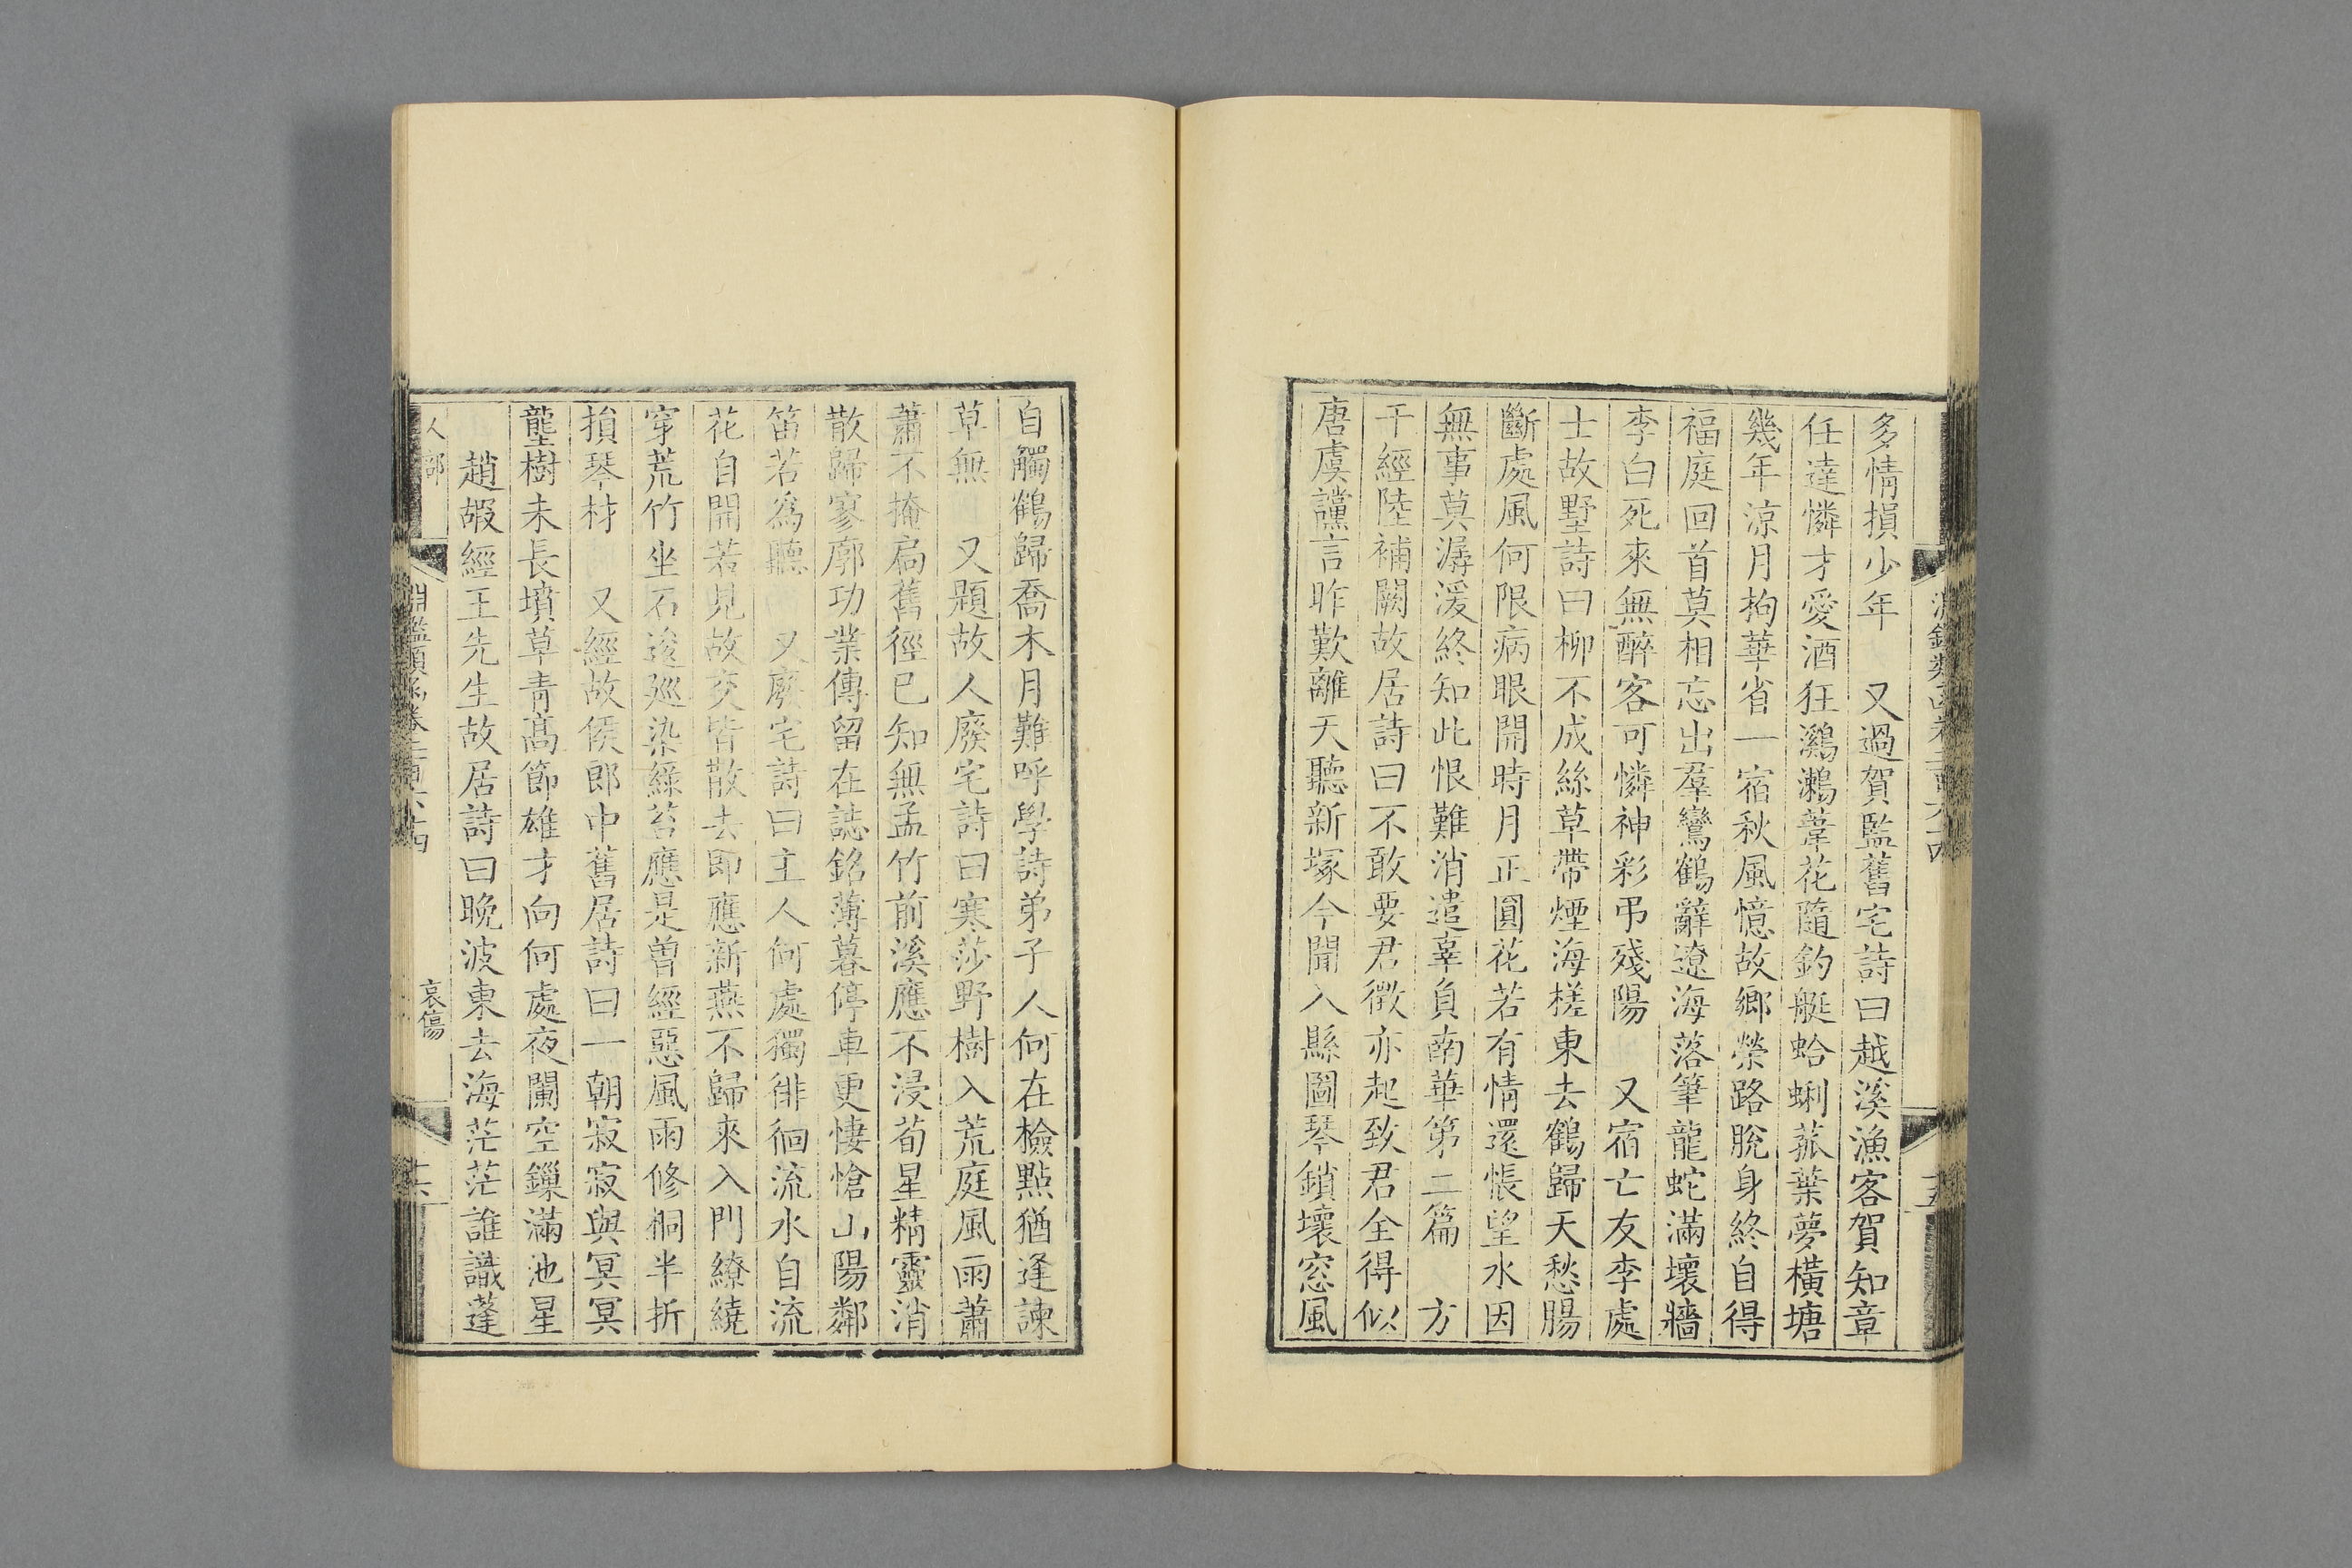 多情損少年　又過賀監舊宅詩曰越溪漁客賀知章
任達憐才愛酒狂鸂鶒葦花隨釣艇蛤蜊菰葉夢橫塘
幾年涼月拘華省一宿秋風憶故鄉榮路脫身終自得
福庭回首莫相忘出羣鸞鶴辭遼海落筆龍蛇滿壞牆
李白死來無醉客可憐神彩弔殘陽　又宿亡友李處
士故墅詩曰柳不成絲草帶煙海槎東去鶴歸天愁腸
斷處風何限病眼開時月正圓花若有情還悵望水因
無事莫潺湲終知此恨難消遣辜負南華第二篇　方
干經陸補闕故居詩曰不敢要君徵亦起致君全得似
唐虞讜言昨歎離天聽新塚今聞入縣圖琴鎖壞窓風
自觸鶴歸喬木月難呼學詩弟子人何在檢點猶逢諫
草無　又題故人廢宅詩曰寒莎野樹入荒庭風雨蕭
蕭不掩扃舊徑已知無孟竹前溪應不浸荀星精靈消
散歸寥廓功業傳留在誌銘薄暮停車更悽愴山陽鄰
笛若爲聽　又廢宅詩曰主人何處獨徘徊流水自流
花自開若見故交皆散去即應新燕不歸來入門繚繞
穿荒竹坐石逡廵染綠苔應是曾經惡風雨修桐半折
損琴材　又經故侯郎中舊居詩曰一朝寂寂與冥冥
壟樹未長墳草青髙節雄才向何處夜闌空鏁滿池星
趙嘏經王先生故居詩曰晚波東去海茫茫誰識蓬
人部
淵鑑類函卷二百六十四
哀傷